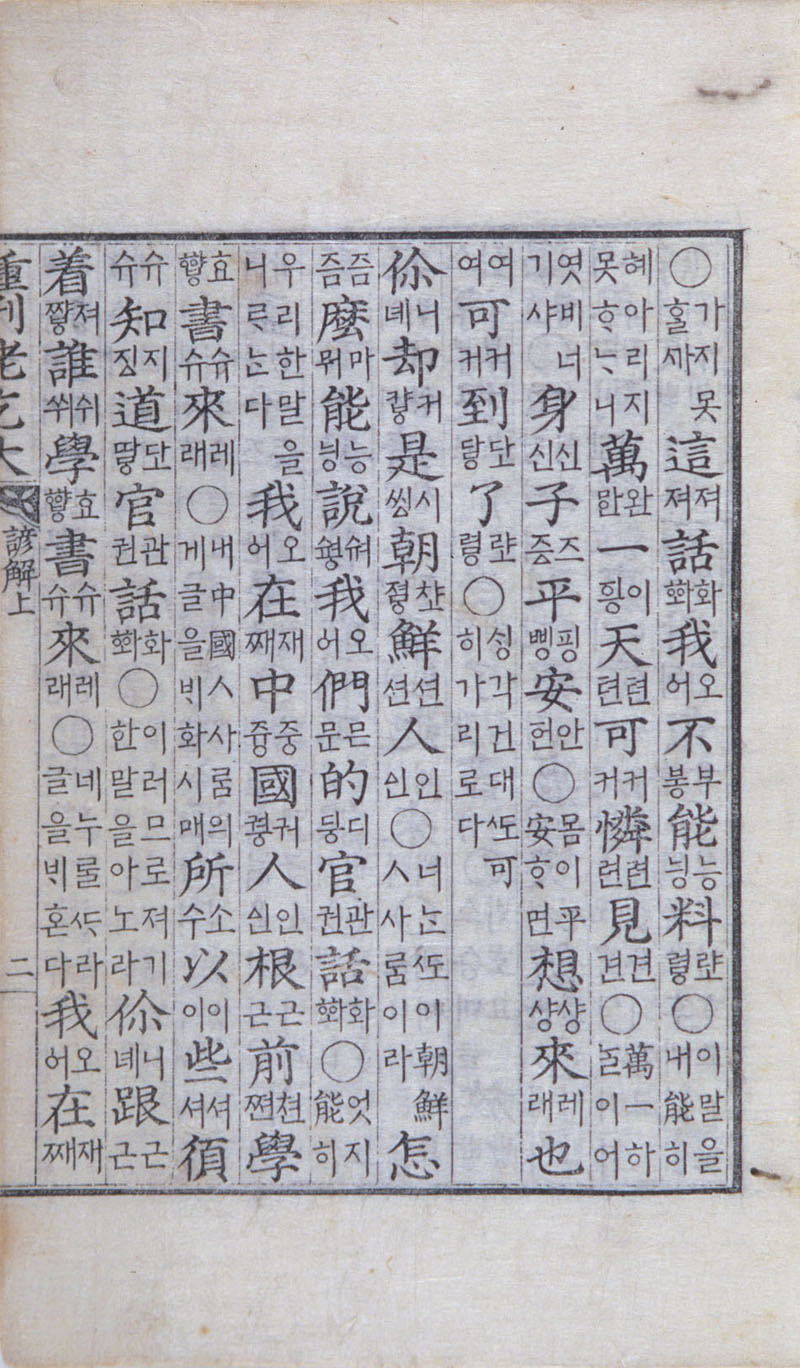 ○가지못홀ᄭᅡ 這져져 話화ᅘᅪ 我오어 不부봉 能능닝 料럎령 ○이말을내能히
혜아리지못ᄒᆞᄂᆞ니 萬완만 一이힁 天텬텬 可커커 憐련련 見견견 ○萬一하ᄂᆞᆯ이어
엿비너기샤 身신신 子즈증 平핑삥 安안헌 ○몸이平安ᄒᆞ면 想샹샹 來레래 也
여여 可커커 到닾당 了럎령 ○싱각건대ᄯᅩ可히가리로다
你니녜 却커컁 是시씽 朝챺졍 鮮션션 人인ᅀᅵᆫ ○너ᄂᆞᆫᄯᅩ이朝鮮ㅅ사ᄅᆞᆷ이라 怎
즘즘 麼마뭐 能능닝 說숴 我오어 們믄문 的디딍 官관권 話화ᅘᅪ ○엇지能히
우리한말을니ᄅᆞᄂᆞᆫ다 我오어 在재째 中중즁 國궈귕 人인ᅀᅵᆫ 根근근 前쳔쪈 學
효ᅘᅣᇢ 書슈슈 來레래 ○내中國ㅅ사ᄅᆞᆷ의게글을ᄇᆡ화시매 所소수 以이이 些셔셔 須
슈슈 知지징 道닾땋 官관권 話화ᅘᅪ ○이러므로져기한말을아노라 你니녜 跟근근
着져쨩 誰쉬쒸 學효ᅘᅣᇢ 書슈슈 來레래 ○네누를ᄯᆞ라글을ᄇᆡ혼다 我오어 在재째
重刊老乞大 諺解上 二